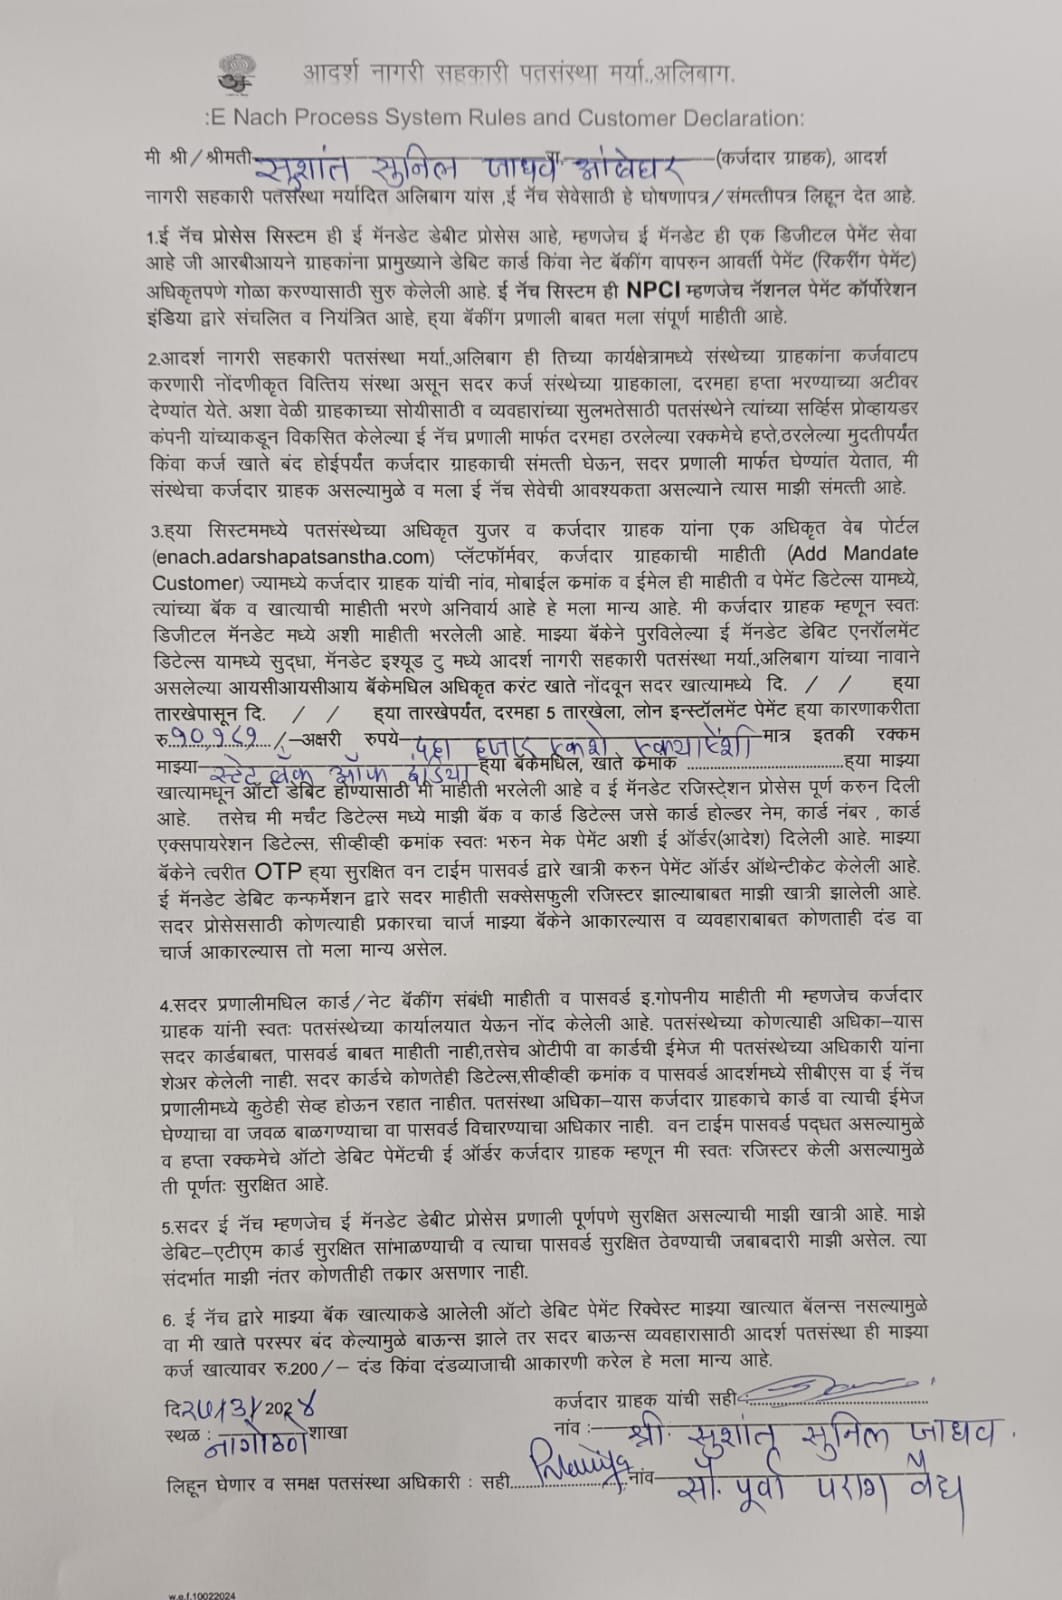 आदर्श नागरी सहकारी पतसंस्था मर्या.,अलिबाग.
:E Nach Process System Rules and Customer Declaration:
मी श्री/श्रीमती सुशांत सुनिल जाधव रा. आंबेघर (कर्जदार ग्राहक), आदर्श
नागरी सहकारी पतसंस्था मर्यादित अलिबाग यांस ,ई नॅच सेवेसाठी हे घोषणापत्र/संमत्तीपत्र लिहून देत आहे.
1.ई नॅच प्रोसेस सिस्टिम ही ई मॅनडेट डेबीट प्रोसेस आहे, म्हणजेच ई मॅनडेट ही एक डिजीटल पेमेंट सेवा
आहे जी आरबीआयने ग्राहकांना प्रामुख्याने डेबिट कार्ड किंवा नेट बॅकींग वापरुन आवर्ती पेमेंट (रिकरींग पेमेंट)
अधिकृतपणे गोळा करण्यासाठी सुरु केलेली आहे. ई नॅच सिस्टिम ही NPCI म्हणजेच नॅशनल पेमेंट कॉर्पोरेशन
इंडिया द्वारे संचलित व नियंत्रित आहे, ह्या बॅकींग प्रणाली बाबत मला संपूर्ण माहीती आहे.
2.आदर्श नागरी सहकारी पतसंस्था मर्या.,अलिबाग ही तिच्या कार्यक्षेत्रामध्ये संस्थेच्या ग्राहकांना कर्जवाटप
करणारी नोंदणीकृत वित्तिय संस्था असून सदर कर्ज संस्थेच्या ग्राहकाला, दरमहा हप्ता भरण्याच्या अटीवर
देण्यांत येते. अशा वेळी ग्राहकाच्या सोयीसाठी व व्यवहारांच्या सुलभतेसाठी पतसंस्थेने त्यांच्या सर्व्हिस प्रोव्हायडर
कंपनी यांच्याकडून विकसित केलेल्या ई नॅच प्रणाली मार्फत दरमहा ठरलेल्या रक्कमेचे हप्ते,ठरलेल्या मुदतीपर्यंत
किंवा कर्ज खाते बंद होईपर्यंत कर्जदार ग्राहकाची संमत्ती घेऊन, सदर प्रणाली मार्फत घेण्यांत येतात, मी
संस्थेचा कर्जदार ग्राहक असल्यामुळे व मला ई नॅच सेवेची आवश्यकता असल्याने त्यास माझी संमत्ती आहे.
3.ह्या सिस्टिममध्ये पतसंस्थेच्या अधिकृत युजर व कर्जदार ग्राहक यांना एक अधिकृत वेब पोर्टल
(enach.adarshapatsanstha.com) प्लॅटफॉर्मवर, कर्जदार ग्राहकाची माहीती (Add Mandate
Customer) ज्यामध्ये कर्जदार ग्राहक यांची नांव, मोबाईल क्रमांक व ईमेल ही माहीती व पेमेंट डिटेल्स यामध्ये,
त्यांच्या बॅक व खात्याची माहीती भरणे अनिवार्य आहे हे मला मान्य आहे. मी कर्जदार ग्राहक म्हणून स्वतः
डिजीटल मॅनडेट मध्ये अशी माहीती भरलेली आहे. माझ्या बॅकेने पुरविलेल्या ई मॅनडेट डेबिट एनरॉलमेंट
डिटेल्स यामध्ये सुद्धा, मॅनडेट इश्यूड टु मध्ये आदर्श नागरी सहकारी पतसंस्था मर्या.,अलिबाग यांच्या नावाने
असलेल्या आयसीआयसीआय बॅकेमधिल अधिकृत करंट खाते नोंदवून सदर खात्यामध्ये दि. / / ह्या
तारखेपासून दि. / / ह्या तारखेपर्यंत, दरमहा 5 तारखेला, लोन इन्स्टॉलमेंट पेमेंट ह्या कारणाकरीता
रु १०,१८१/-अक्षरी रुपये दहा हजार एकशे एक्याऐंशी मात्र इतकी रक्कम
माझ्या स्टेट बँक ऑफ इंडिया ह्या बॅकेमधिल, खाते क्रमांक ........................ह्या माझ्या
खात्यामधून ऑटो डेबिट होण्यासाठी मी माहीती भरलेली आहे व ई मॅनडेट रजिस्ट्रेशन प्रोसेस पूर्ण करुन दिली
आहे. तसेच मी मर्चंट डिटेल्स मध्ये माझी बॅक व कार्ड डिटेल्स जसे कार्ड होल्डर नेम, कार्ड नंबर , कार्ड
एक्सपायरेशन डिटेल्स, सीव्हीव्ही क्रमांक स्वतः भरुन मेक पेमेंट अशी ई ऑर्डर(आदेश) दिलेली आहे. माझ्या
बॅकेने त्वरीत OTP ह्या सुरक्षित वन टाईम पासवर्ड द्वारे खात्री करुन पेमेंट ऑर्डर ऑथेन्टीकेट केलेली आहे.
ई मॅनडेट डेबिट कन्फर्मेशन द्वारे सदर माहीती सक्सेसफुली रजिस्टर झाल्याबाबत माझी खात्री झालेली आहे.
सदर प्रोसेससाठी कोणत्याही प्रकारचा चार्ज माझ्या बॅकेने आकारल्यास व व्यवहाराबाबत कोणताही दंड वा
चार्ज आकारल्यास तो मला मान्य असेल.
4.सदर प्रणालीमधिल कार्ड/नेट बॅकींग संबंधी माहीती व पासवर्ड इ.गोपनीय माहीती मी म्हणजेच कर्जदार
ग्राहक यांनी स्वतः पतसंस्थेच्या कार्यालयात येऊन नोंद केलेली आहे. पतसंस्थेच्या कोणत्याही अधिका-यास
सदर कार्डबाबत, पासवर्ड बाबत माहीती नाही,तसेच ओटीपी वा कार्डची ईमेज मी पतसंस्थेच्या अधिकारी यांना
शेअर केलेली नाही. सदर कार्डचे कोणतेही डिटेल्स,सीव्हीव्ही क्रमांक व पासवर्ड आदर्शमध्ये सीबीएस वा ई नॅच
प्रणालीमध्ये कुठेही सेव्ह होऊन रहात नाहीत. पतसंस्था अधिका-यास कर्जदार ग्राहकाचे कार्ड वा त्याची ईमेज
घेण्याचा वा जवळ बाळगण्याचा वा पासवर्ड विचारण्याचा अधिकार नाही. वन टाईम पासवर्ड पद्धत असल्यामुळे
व हप्ता रक्कमेचे ऑटो डेबिट पेमेंटची ई ऑर्डर कर्जदार ग्राहक म्हणून मी स्वतः रजिस्टर केली असल्यामुळे
ती पूर्णतः सुरक्षित आहे.
5.सदर ई नॅच म्हणजेच ई मॅनडेट डेबीट प्रोसेस प्रणाली पूर्णपणे सुरक्षित असल्याची माझी खात्री आहे. माझे
डेबिट-एटीएम कार्ड सुरक्षित सांभाळण्याची व त्याचा पासवर्ड सुरक्षित ठेवण्याची जबाबदारी माझी असेल. त्या
संदर्भात माझी नंतर कोणतीही तक्रार असणार नाही.
6. ई नॅच द्वारे माझ्या बॅक खात्याकडे आलेली ऑटो डेबिट पेमेंट रिक्वेस्ट माझ्या खात्यात बॅलन्स नसल्यामुळे
वा मी खाते परस्पर बंद केल्यामुळे बाऊन्स झाले तर सदर बाऊन्स व्यवहारासाठी आदर्श पतसंस्था ही माझ्या
कर्ज खात्यावर रु.200/- दंड किंवा दंडव्याजाची आकारणी करेल हे मला मान्य आहे.
कर्जदार ग्राहक यांची सही
दि /3/ 202४
नांव :- श्री. सुशांत सुनिल जाधव.
स्थळ : नागोठणे शाखा
लिहून घेणार व समक्ष पतसंस्था अधिकारी : सही.......... नांव- सौ. पूर्वा पराग वैद्य
w.e.f.10022024